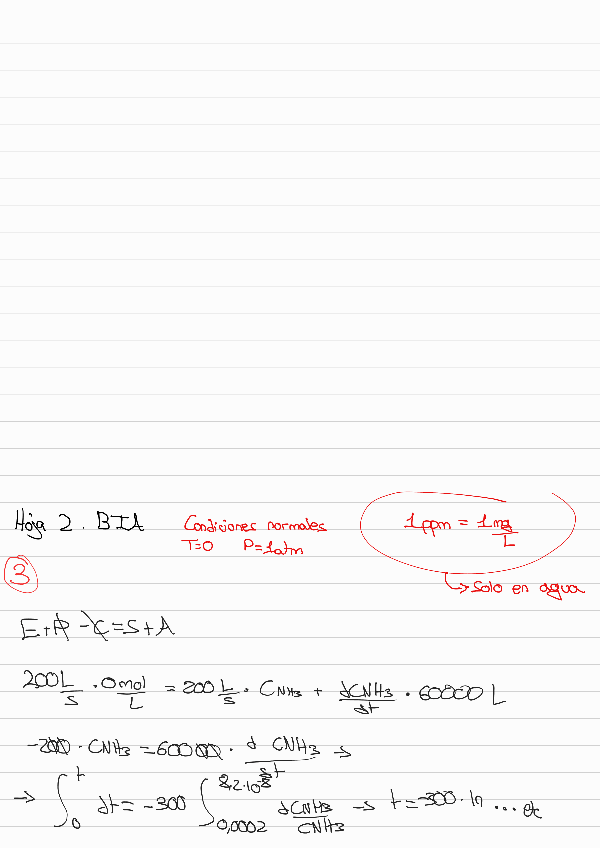 Hoja 2. BIA Condiciones normales 1ppm = 1mg/L
T=0 P=1atm
↳ Solo en agua
3
E+P-C=S+A
200L/s · 0mol/L = 200L/s · CNH3 + dCNH3/dt · 60000L
-200 · CNH3 = 60000 · d CNH3/dt →
→ ∫₀ᵗ dt = -300 ∫ 0,0002 dCNH3/CNH3 → t = -300 · ln ... etc